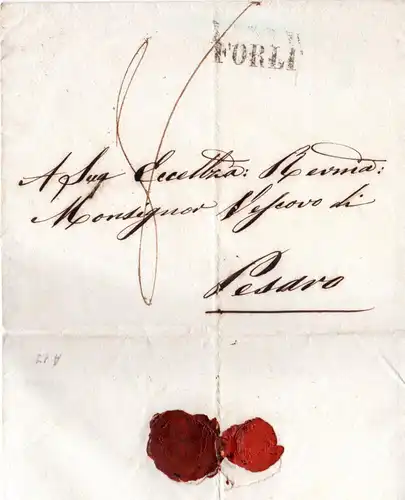 FORLI
A Sua Eccellza: Revma:
Monsignor Vescovo di
Pesaro